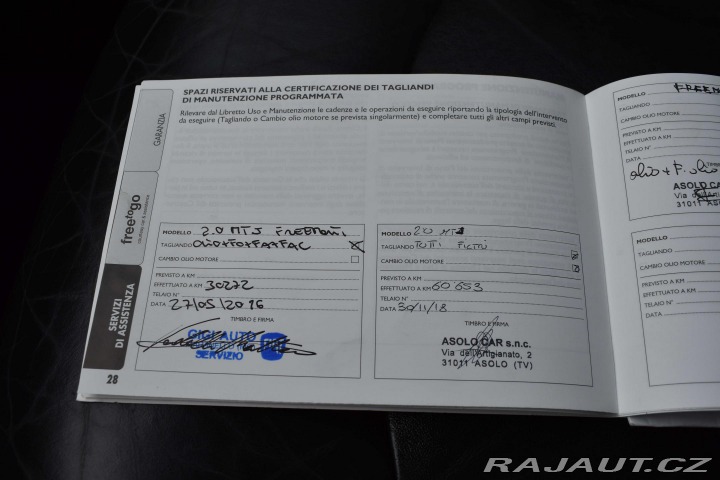 SPAZI RISERVATI ALLA CERTIFICAZIONE DEI TAGLIANDI
DI MANUTENZIONE PROGRAMMATA
Rilevare dal Libretto Uso e Manutenzione le cadenze e le operazioni da eseguire riportando la tipologia dell'intervento
da eseguire (Tagliando o Cambio olio motore se prevista singolarmente) e completare tutti gli altri campi previsti.
GARANZIA
freetogo
SERVIZI
DI ASSISTENZA
28
MODELLO 2.0 MTJ FREEMONT
TAGLIANDO OLIO+FO+FA+FAC
CAMBIO OLIO MOTORE
PREVISTO A KM
EFFETTUATO A KM 30272
TELAIO N°
DATA 27/05/2016
TIMBRO E FIRMA
GIGLAUTO
SERVIZIO
MODELLO 2.0 MTJ
TAGLIANDO TUTTI FILTRI
CAMBIO OLIO MOTORE
PREVISTO A KM
EFFETTUATO A KM 60653
TELAIO N°
DATA 30/11/18
TIMBRO E FIRMA
ASOLO CAR s.n.c.
Via dell'Artigianato, 2
31011 ASOLO (TV)
MODELLO
TAGLIANDO
CAMBIO OLIO MOTORE
PREVISTO A KM
EFFETTUATO A KM
TELAIO N°
DATA
olio + F. olio
ASOLO CAR
Via
31011 ASO
MODELLO
TAGLIANDO
CAMBIO OLIO MOTORE
PREVISTO A KM
EFFETTUATO A KM
TELAIO N°
DATA
RAJAUT.CZ